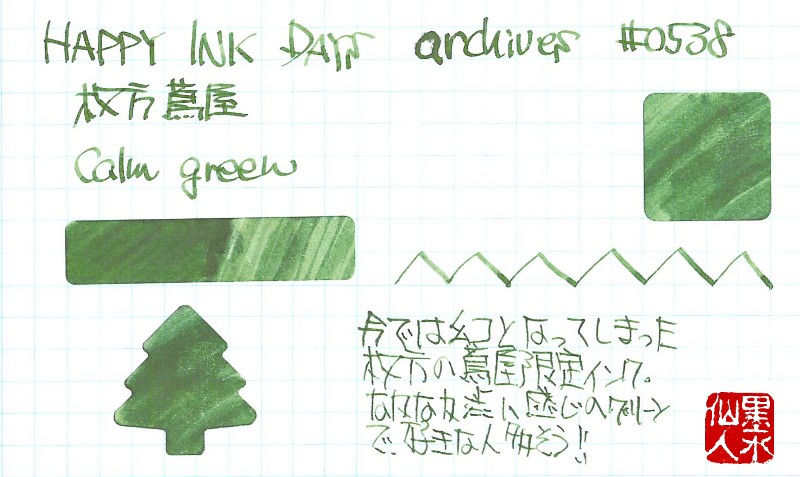 HAPPY INK DAYS archives #0538
枚方蔦屋
Calm green
今では幻となってしまった
枚方の蔦屋限定インク。
なかなか渋い感じのグリーン
で、好きな人多そう!!
墨水
仙人